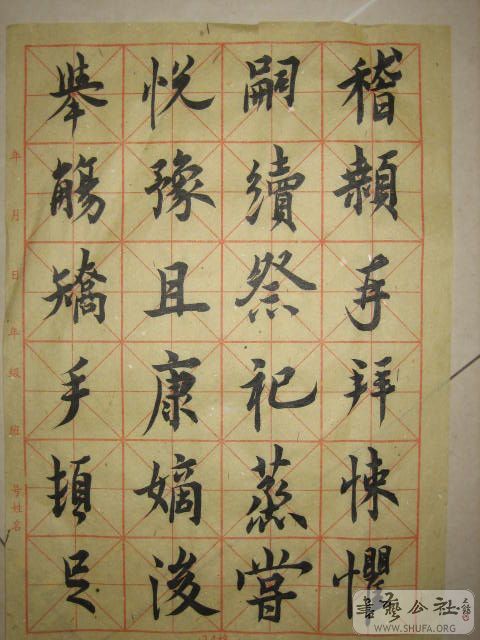 稽顙再拜悚懼
嗣續祭祀蒸嘗
悅豫且康嫡後
舉觴矯手頓足
年月日年級班号姓名
書藝公社
WWW.SHUFA.ORG